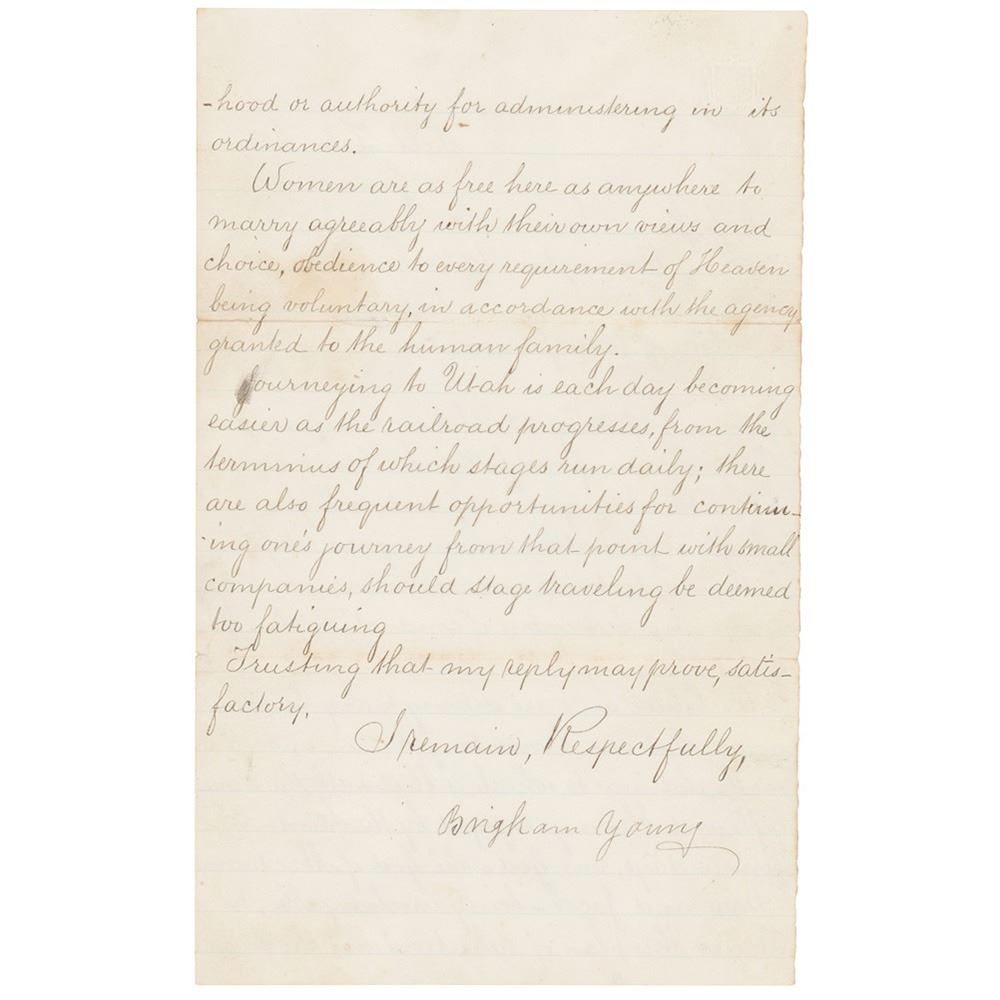 -hood or authority for administering in its
ordinances.
Women are as free here as anywhere to
marry agreeably with their own views and
choice, obedience to every requirement of Heaven
being voluntary, in accordance with the agency
granted to the human family.
Journeying to Utah is each day becoming
easier as the railroad progresses, from the
terminus of which stages run daily; there
are also frequent opportunities for continu-
ing one's journey from that point with small
companies, should stage traveling be deemed
too fatiguing
Trusting that my reply may prove, satis-
factory,
I remain, Respectfully,
Brigham Young